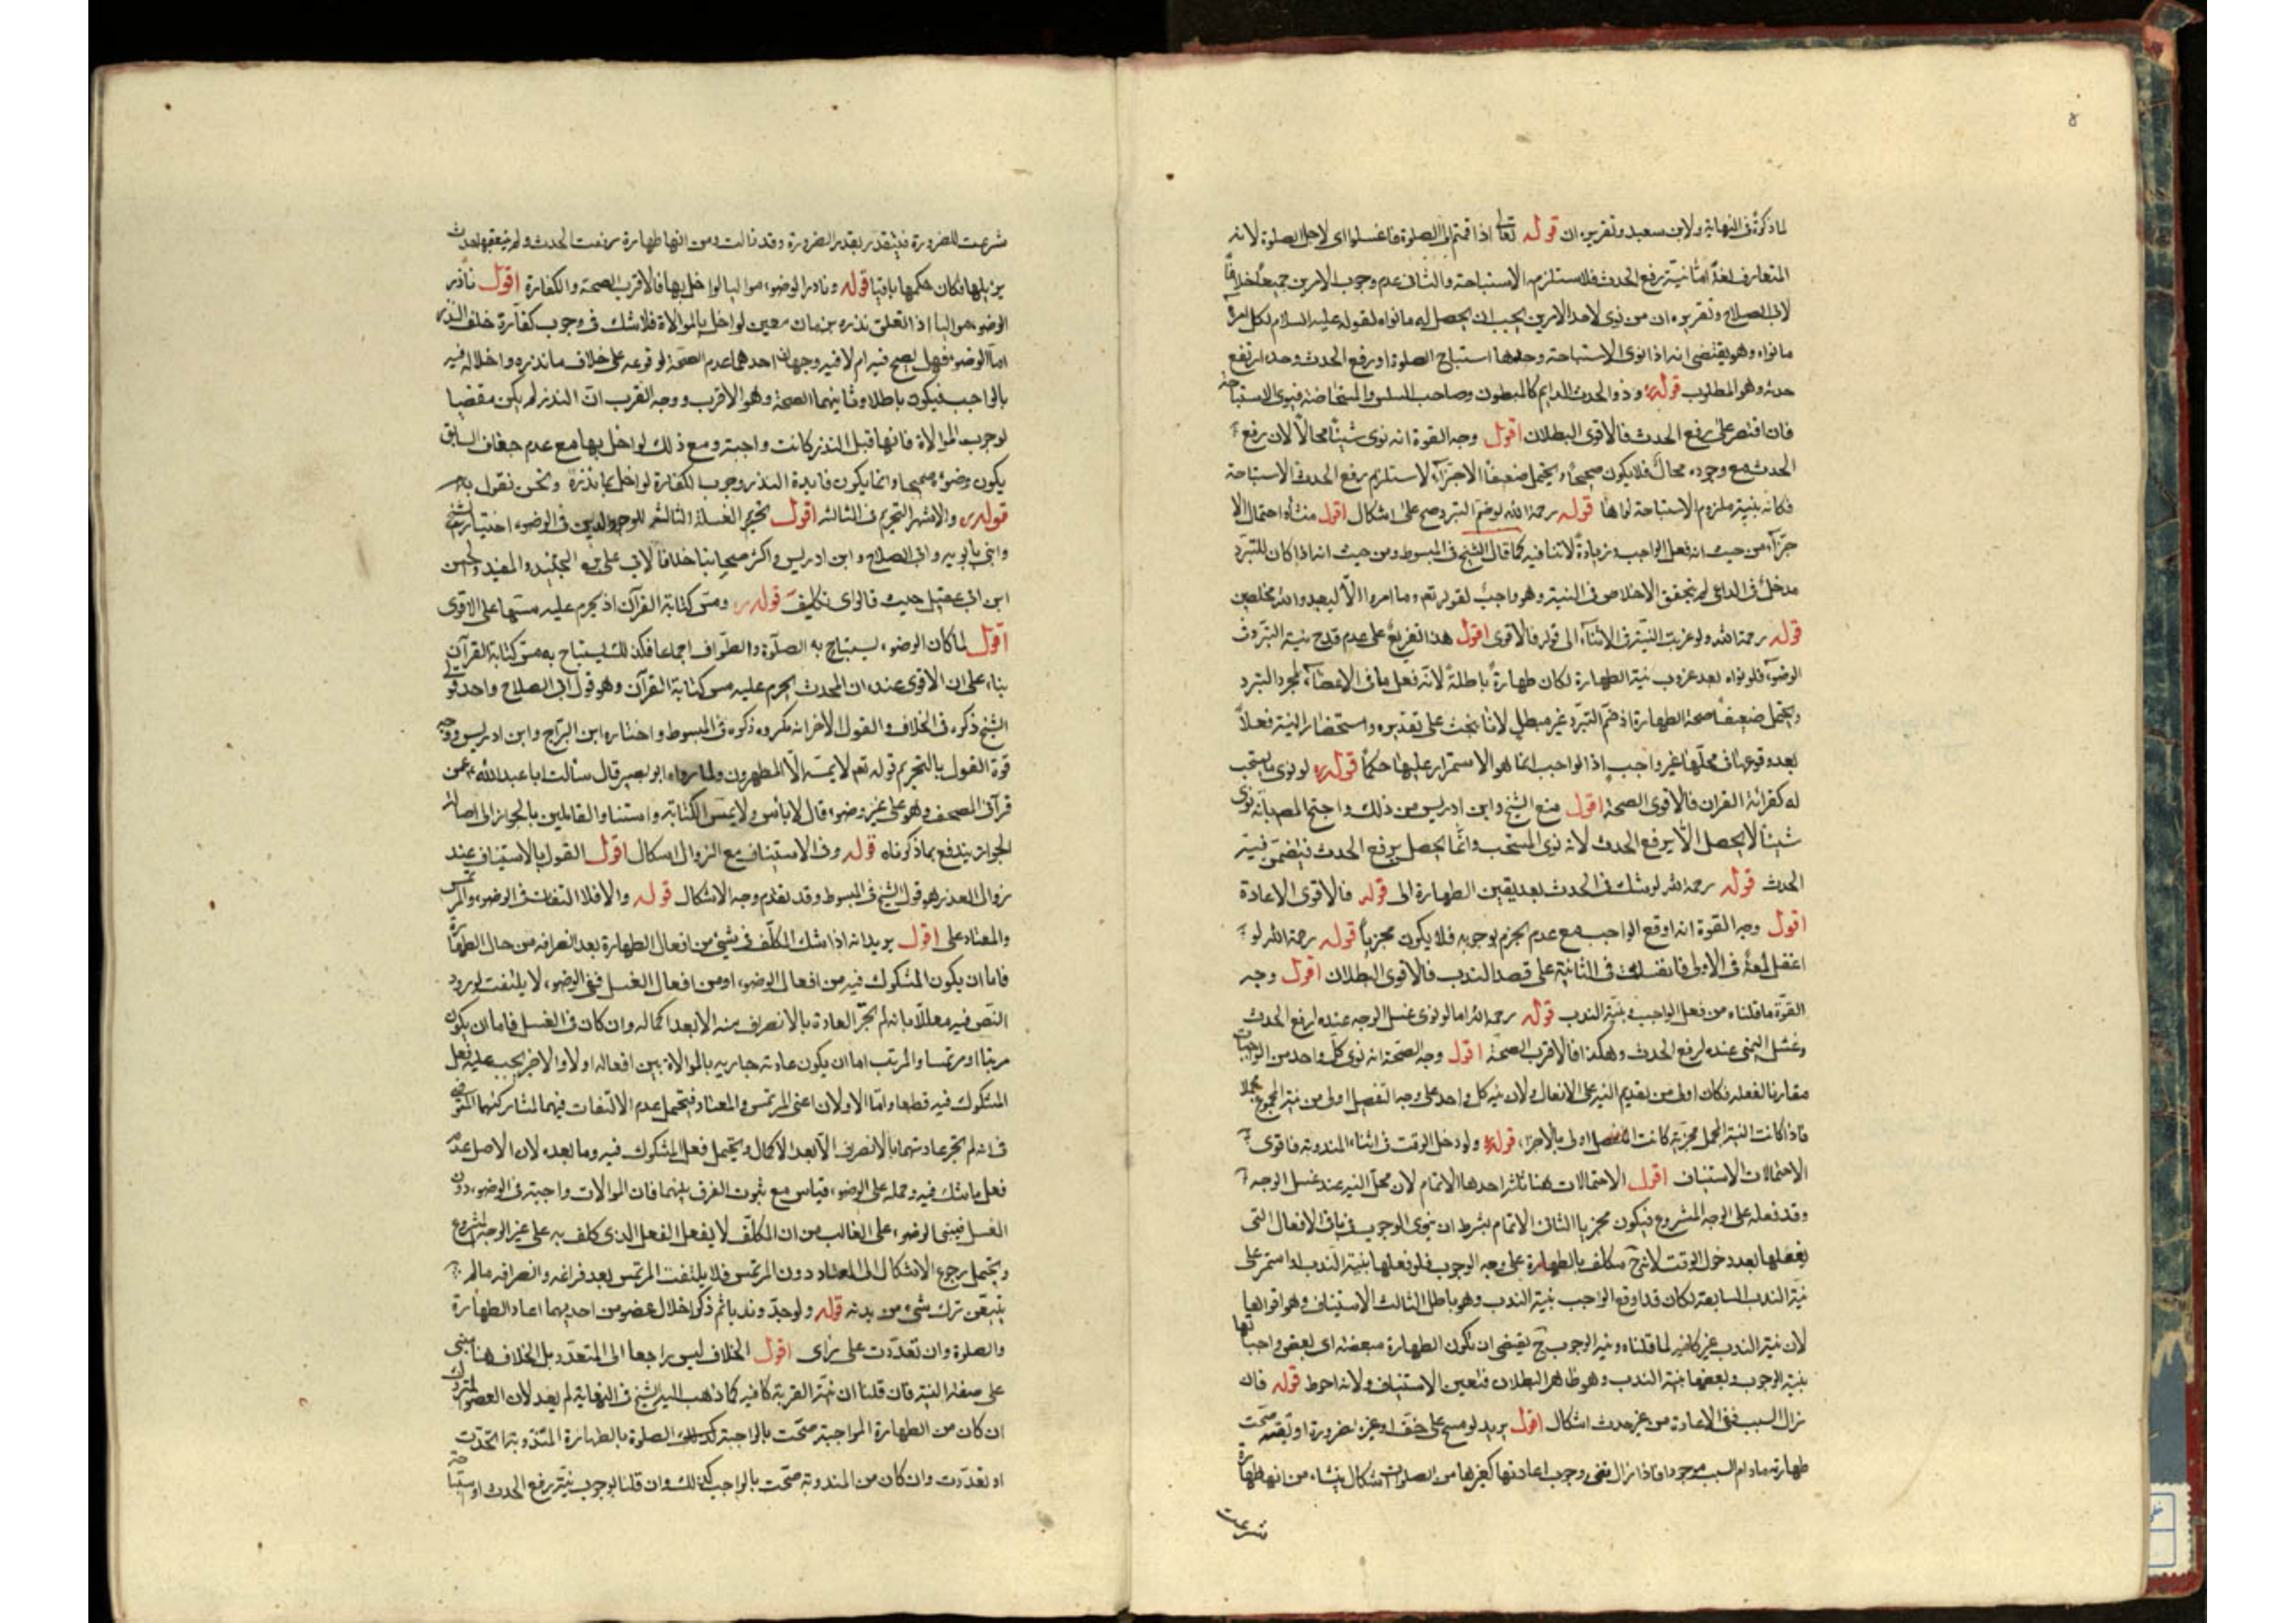 لما ذكره فى النهاية ولابن سعيد وتقريره ان قوله تعالى اذا قمتم الى الصلوة فاغسلوا اى لاجل الصلوة لانه
المتعارف لغة اما نية رفع الحدث فلاستلزمه الاستباحة والثانى عدم وجوب الامرين جميعا خلافا
لابى الصلاح وتقريره ان من نوى لاحد الامرين يجب ان يحصل له ما نواه لقوله عليه السلام لكل امرء
ما نواه وهو يقتضى انه اذا نوى الاستباحة وحدها استباح الصلوة او رفع الحدث وحده ارتفع
حدثه وهو المطلوب قوله وذو الحدث الدايم كالمبطون وصاحب السلس والمستحاضة فينوى الاستباحة
فان اقتصر على رفع الحدث فالاقوى البطلان اقول وجه القوة انه نوى شيئا محالا لان رفع
الحدث مع وجوده محال فلا يكون صحيحا ويحتمل ضعيفا الاجزاء لاستلزام رفع الحدث الاستباحة
فكانه بنية ملزوم الاستباحة نواها قوله رحمه الله لو ضم التبرد صح على اشكال اقول منشاه احتمال الا
جزاء من حيث انه فعل الواجب وزيادة لا تنافيه كما قال الشيخ فى المبسوط ومن حيث انه اذا كان للتبرد
مدخل فى الداعى لم يتحقق الاخلاص فى النية وهو واجب لقوله تعم وما امروا الا ليعبدوا الله مخلصين
قوله رحمه الله ولو عزبت النية فى الاثناء الى قوله فالاقوى اقول هذا تفريع على عدم قدح نية التبرد فى
الوضوء فلو نواه بعد عزوب نية الطهارة لكان طهارة باطلة لانه فعل باقى الاعضاء لمجرد التبرد
ويحتمل ضعيفا صحة الطهارة اذ ضم التبرد غير مبطل لانا نبحث على تقديره واستحضار النية فعلا
بعد وقوعها فى محلها غير واجب اذ الواجب انما هو الاستمرار عليها حكما قوله لو نوى ما يستحب
له كقرائة القران فالاقوى الصحة اقول منع الشيخ وابن ادريس من ذلك واحتج المص بانه نوى
شيئا لا يحصل الا برفع الحدث لانه نوى المستحب وانما يحصل برفع الحدث فيتضمن نية
الحدث قوله رحمه الله لو شك فى الحدث بعد يقين الطهارة الى قوله فالاقوى الاعادة
اقول وجه القوة انه اوقع الواجب مع عدم الجزم بوجوبه فلا يكون مجزيا قوله رحمه الله لو
اغفل لمعة فى الاولى فانغسلت فى الثانية على قصد الندب فالاقوى البطلان اقول وجه
القوة ما قلناه من فعل الواجب بنية الندب قوله رحمه الله اما لو نوى غسل الوجه عنده لرفع الحدث
وغسل اليمنى عنده لرفع الحدث وهكذا فالاقرب الصحة اقول وجه الصحة انه نوى كل واحد من الواجبات
مقارنا لفعله فكان اولى من تقديم النية على الافعال ولان نية كل واحد على وجه التفصيل اولى من نية المجموع مجملا
فاذا كانت النية المجمل مجزية كانت المفصل اولى بالاجزاء قوله ولو دخل الوقت فى اثناء المندوبة فاقوى
الاحتمالات الاستيناف اقول الاحتمالات هنا ثلاثة احدها الاتمام لان محل النية عند غسل الوجه
وقد فعله على الوجه المشروع فيكون مجزيا الثانى الاتمام بشرط ان ينوى الوجوب فى باقى الافعال التى
يفعلها بعد دخول الوقت لانه ح مكلف بالطهارة على وجه الوجوب فلو فعلها بنية الندب او استمر على
نية الندب السابقة لكان قد اوقع الواجب بنية الندب وهو باطل الثالث الاستيناف وهو اقواها
لان نية الندب غير كافيه لما قلناه ونية الوجوب ح يقتضى ان تكون الطهارة مبعضة اى بعض واجباتها
بنية الوجوب وبعضها بنية الندب وهو ظاهر البطلان فتعين الاستيناف ولانه احوط قوله فان
زال السبب ففى الاعادة من غير حدث اشكال اقول يريد لو مسح على خف او غيره لضرورة او تقية صحت
طهارته مادام السبب موجودا فاذا زال ففى وجوب اعادتها كغيرها من الصلوات اشكال ينشاء من انها طهارة
شرعت
شرعت للضرورة فيتقدر بقدر الضرورة وقد زالت ومن انها طهارة رفعت الحدث ولم يتعقبها حدث
يزيلها فكان حكمها باقيا قوله وناذر الوضوء مواليا لو اخل بها فالاقرب الصحة والكفارة اقول ناذر
الوضوء مواليا اذا تعلق نذره بزمان معين لو اخل بالموالاة فلا شك فى وجوب كفارة خلف النذر
اما الوضوء فهل يصح فيه ام لا فيه وجهان احدهما عدم الصحة لوقوعه على خلاف ما نذره واخلاله فيه
بالواجب فيكون باطلا وثانيهما الصحة وهو الاقرب ووجه القرب ان النذر لم يكن مقتضيا
لوجوب الموالاة فانها قبل النذر كانت واجبة ومع ذلك لو اخل بها مع عدم جفاف السابق
يكون وضوءه صحيحا وانما يكون فايدة النذر وجوب الكفارة لو اخل بما نذره ونحن نقول به
قوله والاشهر التحريم فى الثالثه اقول تحريم الغسلة الثالثة للوجه واليدين فى الوضوء اختيار الشيخ
وابنى بابويه وابى الصلاح وابن ادريس واكثر اصحابنا خلافا لابى على بن الجنيد والمفيد والحسن
ابن ابى عقيل حيث قالوا اى تكليف قوله ومس كتابة القرآن اذ يحرم عليه مسها على الاقوى
اقول لما كان الوضوء يستباح به الصلوة والطواف اجماعا فكذلك يستباح به مس كتابة القرآن
بناء على ان الاقوى عنده ان المحدث يحرم عليه مس كتابة القرآن وهو قول ابى الصلاح واحد قولى
الشيخ ذكره فى الخلاف والقول الاخر انه مكروه ذكره فى المبسوط واختاره ابن البراج وابن ادريس ووجه
قوة القول بالتحريم قوله تعم لا يمسه الا المطهرون ولما رواه ابو بصير قال سألت ابا عبد الله ع عمن
قرأ فى المصحف وهو على غير وضوء قال لا بأس ولا يمس الكتابة واستناد القائلين بالجواز الى اصالة
الجواز يندفع بما ذكرناه قوله وفى الاستيناف مع الزوال اشكال اقول القول بالاستيناف عند
زوال العذر هو قول الشيخ فى المبسوط وقد تقدم وجه الاشكال قوله والا فلا التفات فى الوضوء والمرتمس
والمعتاد على اقول يريد انه اذا شك المكلف فى شئ من افعال الطهارة بعد انصرافه من حال الطهارة
فاما ان يكون المشكوك فيه من افعال الوضوء او من افعال الغسل ففى الوضوء لا يلتفت لورود
النص فيه معللا بانه لم تجر العادة بالانصراف منه الا بعد اكماله وان كان فى الغسل فاما ان يكون
مرتبا او مرتمسا والمرتب اما ان يكون عادته جاريه بالموالاة بين افعاله اولا والاخير يجب عليه فعل
المشكوك فيه قطعا واما الاولان اعنى المرتمس والمعتاد فيحتمل عدم الالتفات فيهما لمشاركتهما المتوضى
فى انه لم تجر عادتهما بالانصراف الا بعد الاكمال ويحتمل فعل المشكوك فيه وما بعده لان الاصل عدم
فعل ما شك فيه وحمله على الوضوء قياس مع ثبوت الفرق بينهما فان الموالات واجبة فى الوضوء دون
الغسل فيبنى الوضوء على الغالب من ان المكلف لا يفعل الفعل الذى كلف به على غير الوجه المشروع
ويحتمل رجوع الاشكال الى المعتاد دون المرتمس فلا يلتفت المرتمس بعد فراغه وانصرافه مالم
يتيقن ترك شئ من بدنه قوله ولو جدد ندبا ثم ذكر اخلال عضو من احديهما اعاد الطهارة
والصلوة وان تعددت على راى اقول الخلاف ليس راجعا الى المتعدد بل الخلاف هنا مبنى
على صفة النية فان قلنا ان نية القربة كافيه كما ذهب اليه الشيخ فى النهاية لم يعد لان العضو المتروك
ان كان من الطهارة الواجبة صحت بالواجبة كذلك الصلوة بالطهارة المندوبة اتحدت
او تعددت وان كان من المندوبة صحت بالواجب كذلك وان قلنا بوجوب نية رفع الحدث او استباحة